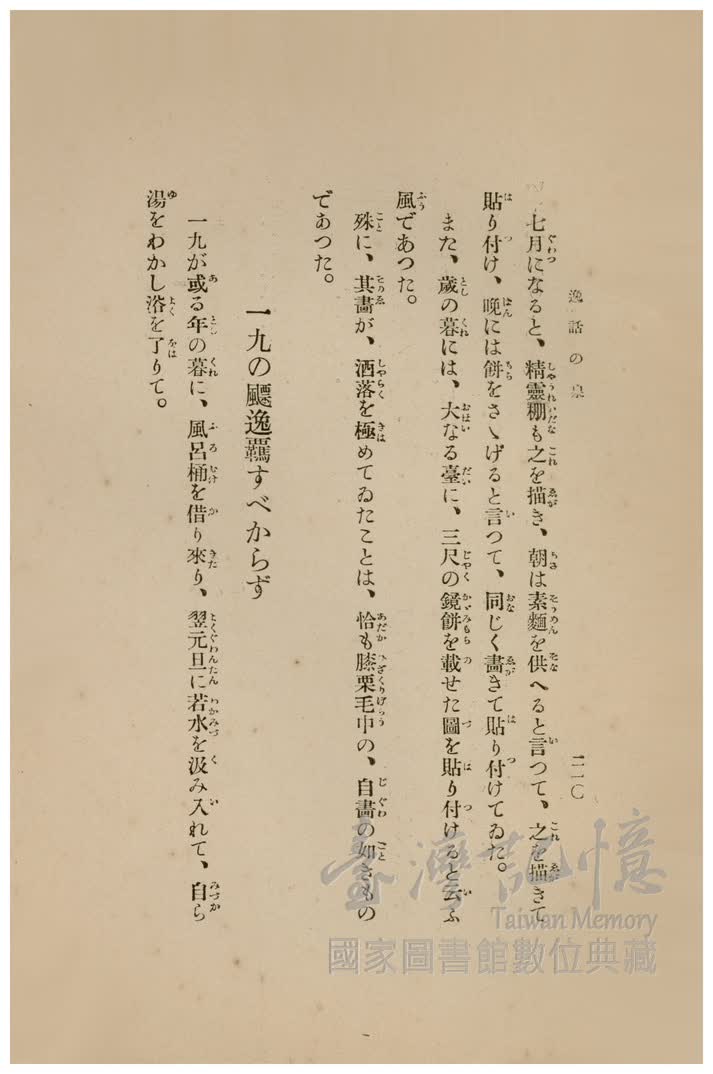 逸話の泉
二一〇
七月になると、精靈棚も之を描き、朝は素麵を供へると言つて、之を描きて
貼り付け、晩には餅をさゝげると言つて、同じく畫きて貼り付けてゐた。
また、歳の暮には、大なる臺に、三尺の鏡餅を載せた圖を貼り付けると云ふ
風であつた。
殊に、其畫が、洒落を極めてゐたことは、恰も膝栗毛中の、自畫の如きもの
であつた。
一九の飃逸羈すべからず
一九が或る年の暮に、風呂桶を借り來り、翌元旦に若水を汲み入れて、自ら
湯をわかし浴を了りて。
臺灣記憶
Taiwan Memory
國家圖書館數位典藏